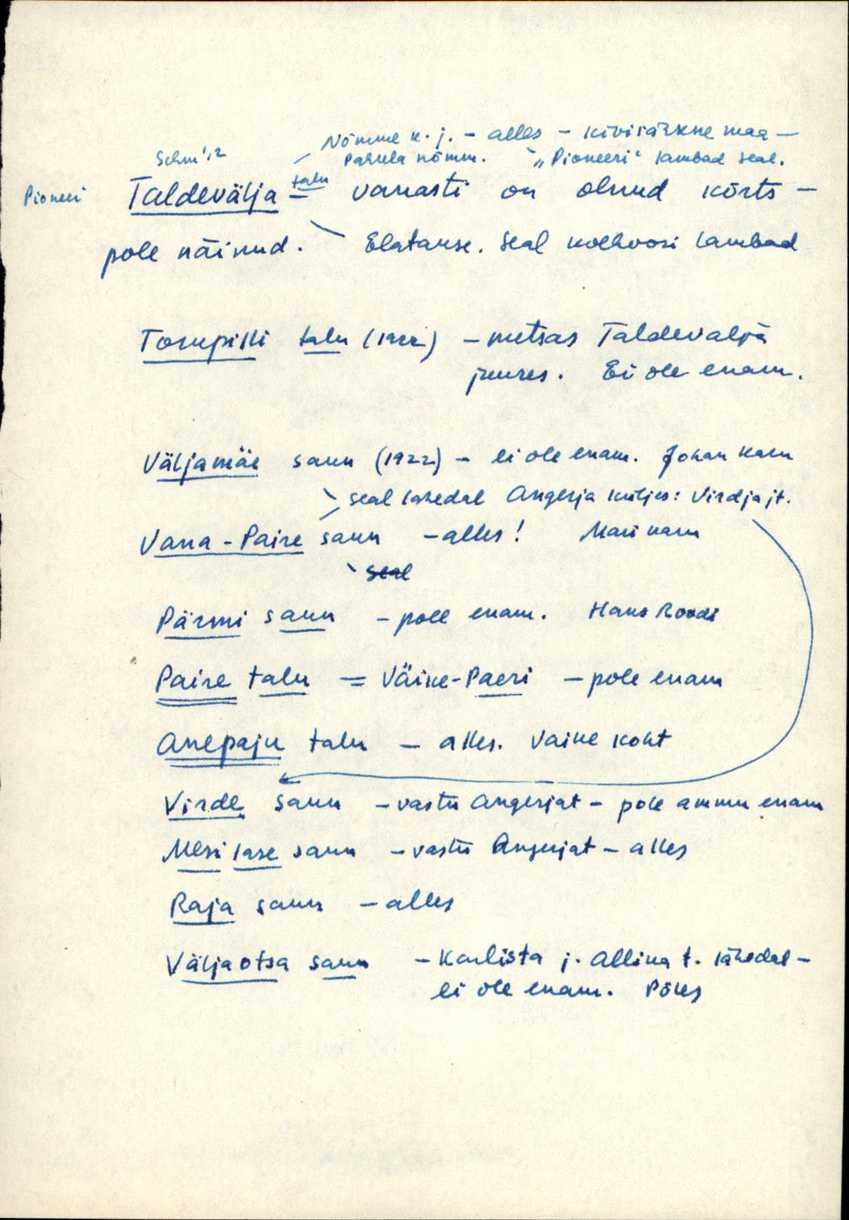 Nõmme k. j. – alles – kivisärkne maa –
Schm'12 Pahula nõmm. "Pioneeri" lambad seal.
Pioneeri Taldevälja talu – vanasti on olnud kõrts –
pole näinud. Elatanse. Seal kolhoosi lambad
Torupilli talu (1922) – metsas Taldevälja
juures. Ei ole enam.
Väljamäe saun (1922) – ei ole enam. Johan Karu
seal lähedal Angerja küljes: Virdja jt.
Vana-Paire saun – alles! Mari Karu
seal
Pärmi saun – pole enam. Hans Roodi
Paire talu = Väike-Paeri – pole enam
Anepaju talu – alles. Väike koht
Virde saun – vastu Angerjat – pole ammu enam
Mesilase saun – vastu Angerjat – alles
Raja saun – alles
Väljaotsa saun – Karlista j. Allika t. lähedal –
ei ole enam. Põles